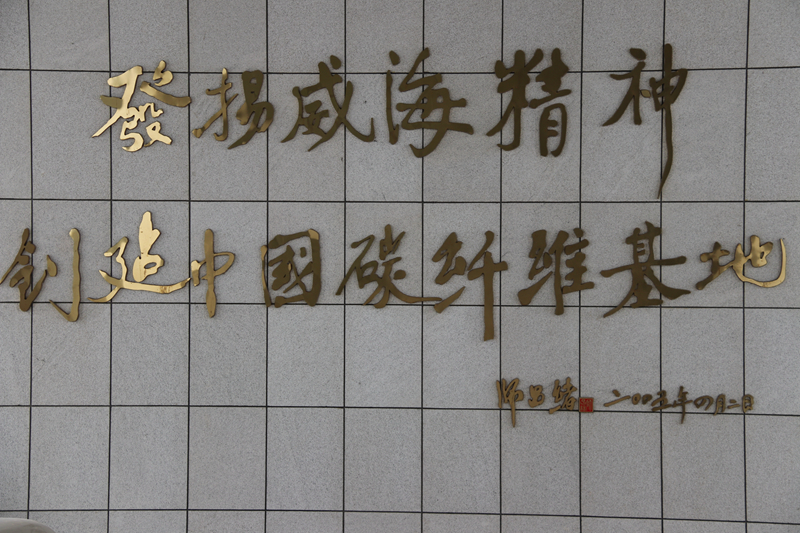 發揚威海精神
创建中國碳纤维基地
师昌绪 二〇〇五年四月二日